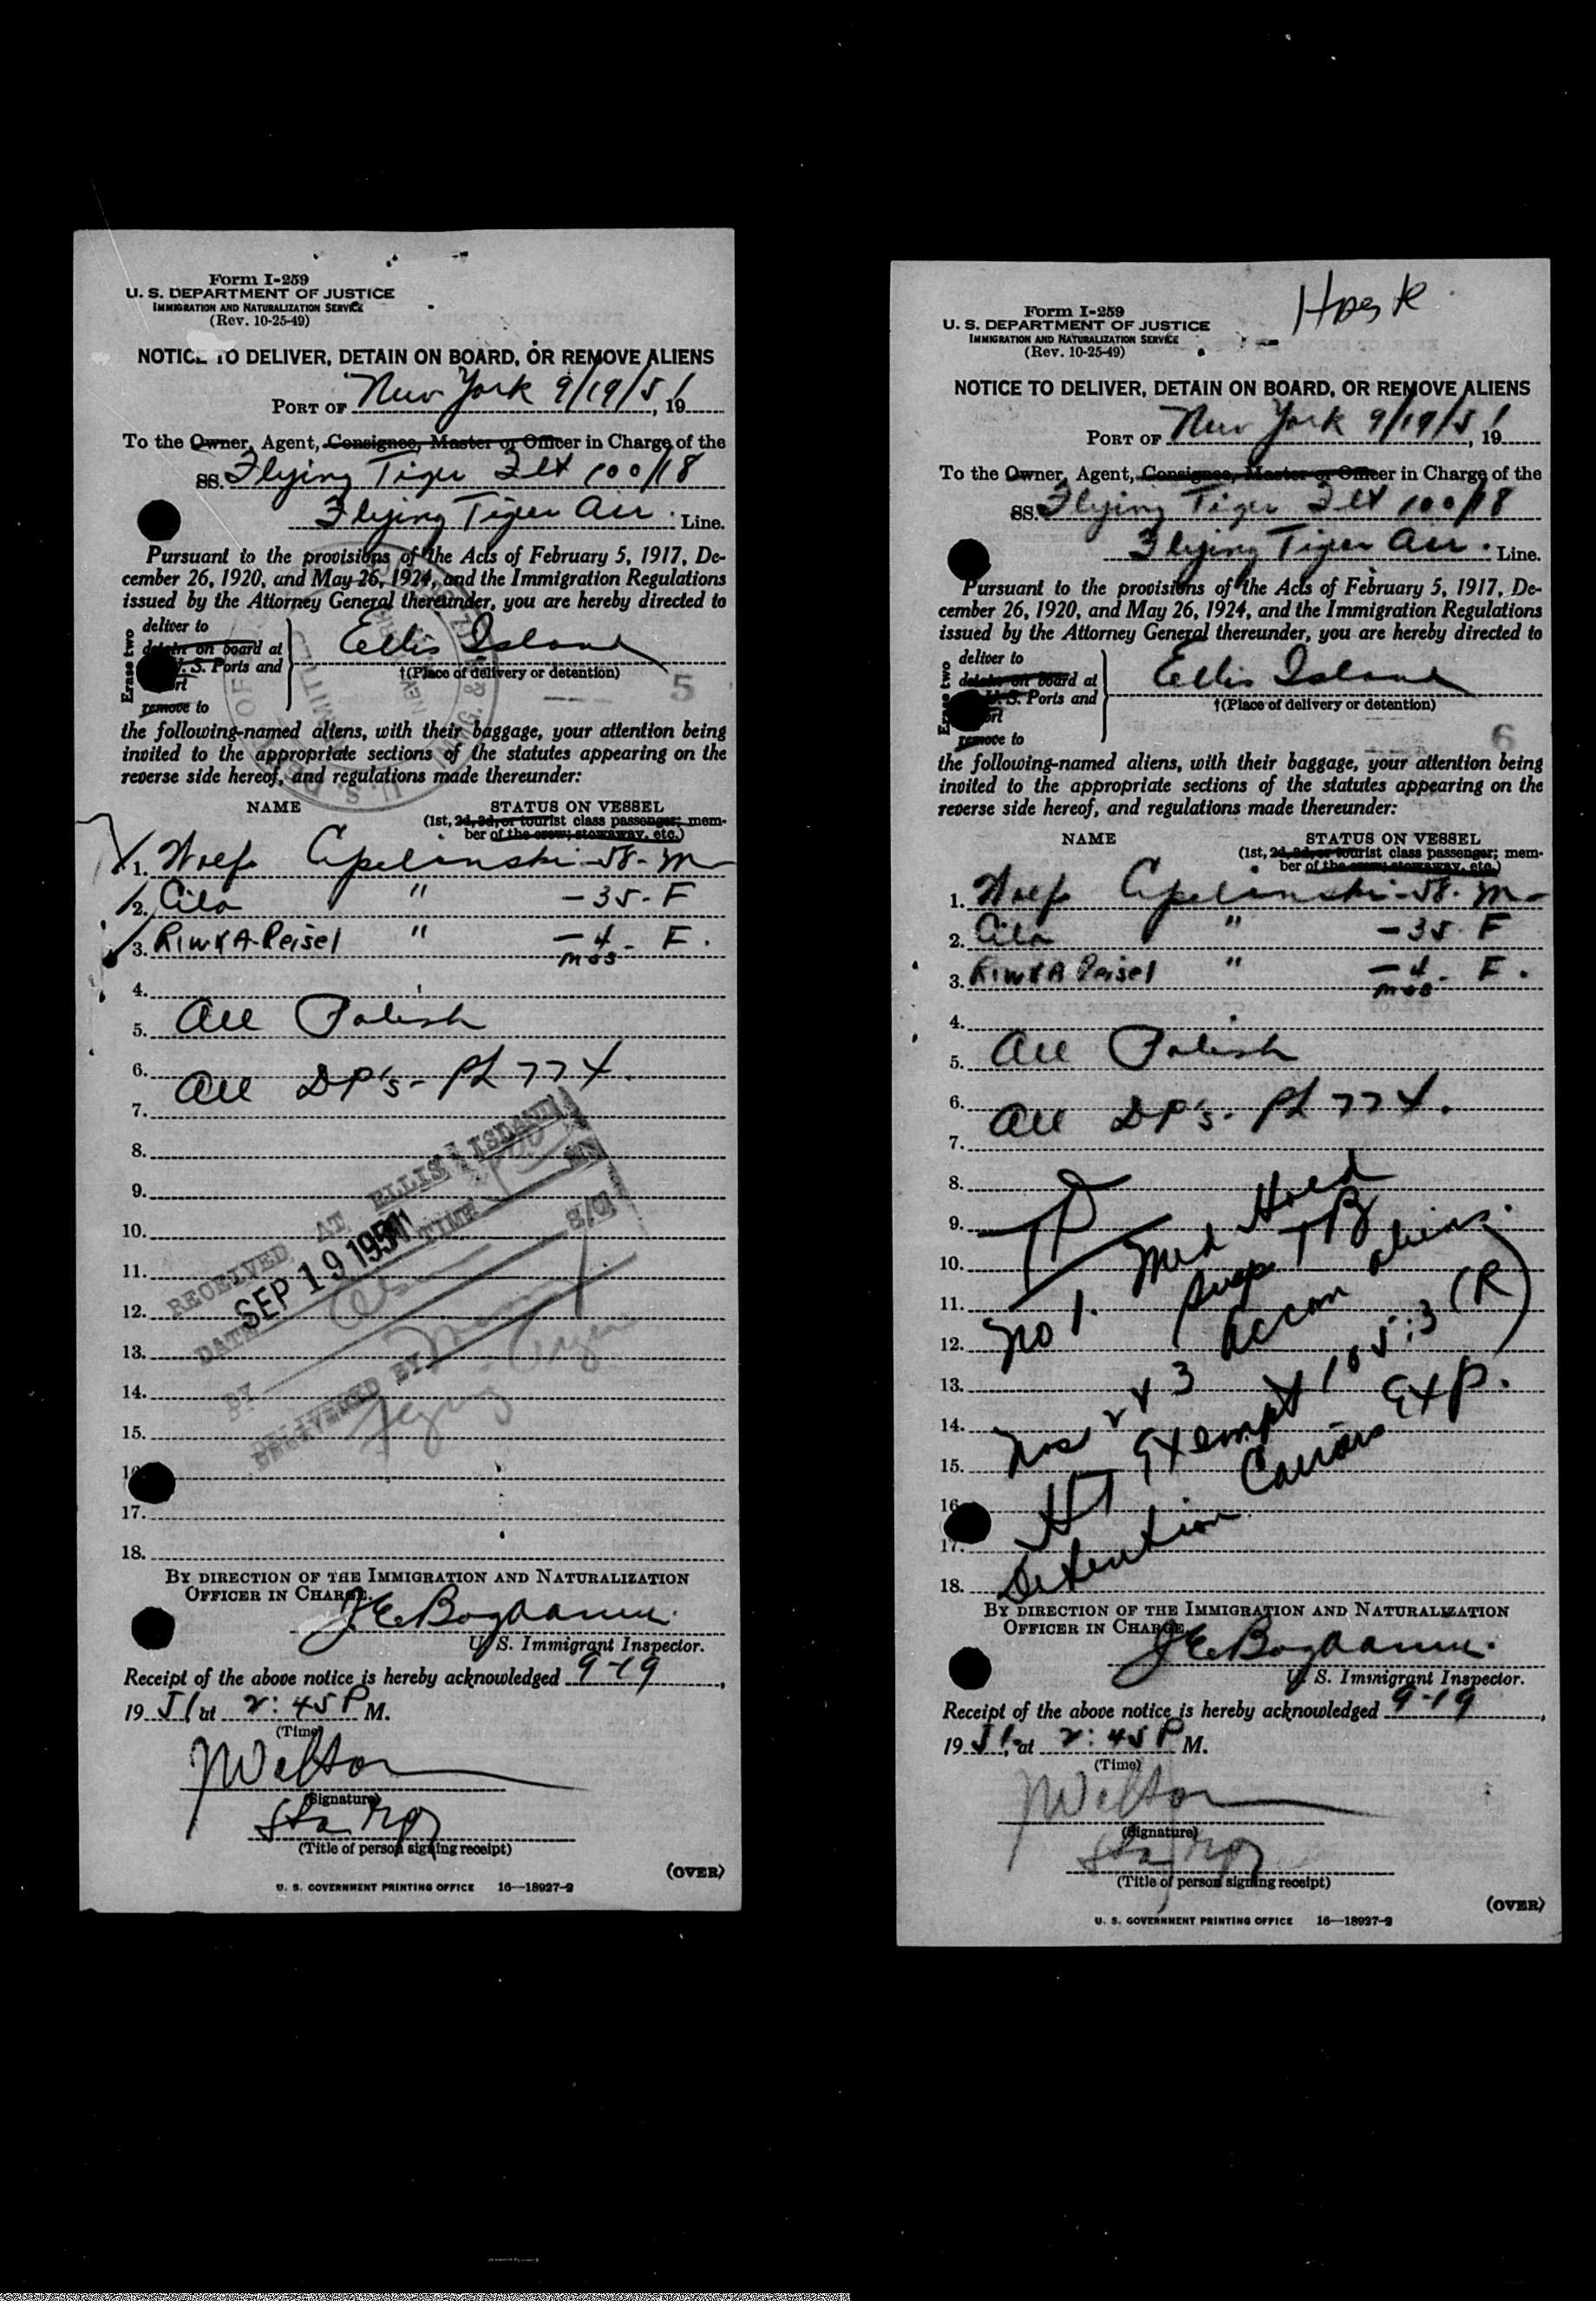 Form I-259
U. S. DEPARTMENT OF JUSTICE
IMMIGRATION AND NATURALIZATION SERVICE
(Rev. 10-25-49)
NOTICE TO DELIVER, DETAIN ON BOARD, OR REMOVE ALIENS
PORT OF New York 9/19/51, 19
To the Owner, Agent, Consignee, Master or Officer in Charge of the
SS. Flying Tiger Flt 100/18
Flying Tiger Air. Line.
Pursuant to the provisions of the Acts of February 5, 1917, De-
cember 26, 1920, and May 26, 1924, and the Immigration Regulations
issued by the Attorney General thereunder, you are hereby directed to
Erase two
deliver to
detain on board at
U. S. Ports and
remove to
Ellis Island
†(Place of delivery or detention)
5
the following-named aliens, with their baggage, your attention being
invited to the appropriate sections of the statutes appearing on the
reverse side hereof, and regulations made thereunder:
NAME STATUS ON VESSEL
(1st, 2d, 3d, or tourist class passenger; mem-
ber of the crew; stowaway, etc.)
1. Wolf - 58 - M
2. Cila " - 35 - F
3. RIWKA-Reisel " - 4 mos - F.
4.
5. All Polish
6.
All DP's - PL 774.
7.
8.
9.
10.
11.
12.
13.
14.
15.
16
17.
18.
RECEIVED AT ELLIS ISLAND
DATE SEP 19 1951 TIME
BY
DELIVERED BY
Flying Tiger
BY DIRECTION OF THE IMMIGRATION AND NATURALIZATION
OFFICER IN CHARGE.
U. S. Immigrant Inspector.
Receipt of the above notice is hereby acknowledged 9-19,
19 51 at 2:45 P M.
(Time)
(Signature)
Sta Mgr
(Title of person signing receipt)
(OVER)
U. S. GOVERNMENT PRINTING OFFICE 16—18927-2
Form I-259
U. S. DEPARTMENT OF JUSTICE
IMMIGRATION AND NATURALIZATION SERVICE
(Rev. 10-25-49)
NOTICE TO DELIVER, DETAIN ON BOARD, OR REMOVE ALIENS
PORT OF New York 9/19/51, 19
To the Owner, Agent, Consignee, Master or Officer in Charge of the
SS. Flying Tiger Flt 100/18
Flying Tiger Air. Line.
Pursuant to the provisions of the Acts of February 5, 1917, De-
cember 26, 1920, and May 26, 1924, and the Immigration Regulations
issued by the Attorney General thereunder, you are hereby directed to
Erase two
deliver to
detain on board at
U. S. Ports and
remove to
Ellis Island
†(Place of delivery or detention)
6
the following-named aliens, with their baggage, your attention being
invited to the appropriate sections of the statutes appearing on the
reverse side hereof, and regulations made thereunder:
NAME STATUS ON VESSEL
(1st, 2d, 3d, or tourist class passenger; mem-
ber of the crew; stowaway, etc.)
1. Wolf - 58 - M
2. Cila " - 35 F
3. RIWKA Reisel " - 4 mos - F.
4.
5. All Polish
6.
All DP's - PL 774.
7.
8.
9.
10.
11.
12.
13.
14.
15.
16
17.
18.
TD
No 1. Med Hold
Susp TB
Nos 2 & 3 accom aliens.
HT Exempt 105.3 (R)
Detention Carriers Exp.
BY DIRECTION OF THE IMMIGRATION AND NATURALIZATION
OFFICER IN CHARGE.
U. S. Immigrant Inspector.
Receipt of the above notice is hereby acknowledged 9-19,
19 51, at 2:45 P M.
(Time)
(Signature)
Sta Mgr
(Title of person signing receipt)
(OVER)
U. S. GOVERNMENT PRINTING OFFICE 16—18927-2